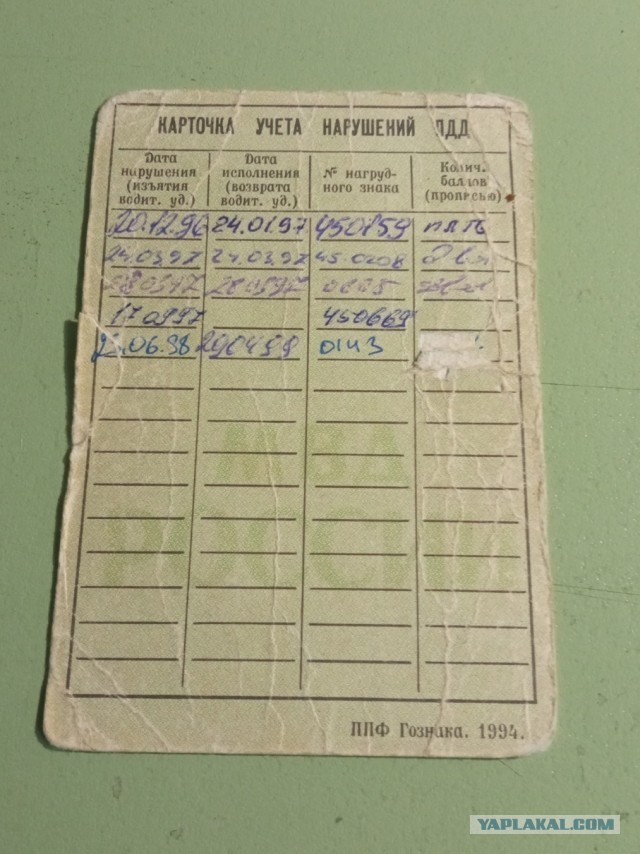 КАРТОЧКА УЧЕТА НАРУШЕНИЙ ПДД
Дата нарушения (изъятия водит. уд.)
Дата исполнения (возврата водит. уд.)
№ нагруд- ного знака
Колич. баллов (прописью)
20.12.96 24.01.97 450159 пять
24.03.97 24.03.97 два
170997 450669
.06.98 290499 0143
МВД
РОССИИ
ППФ Гознака. 1994.
YAPLAKAL.COM